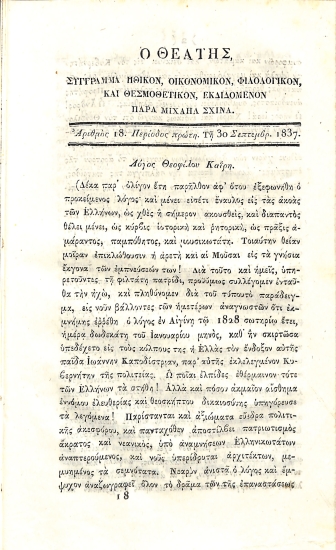 Ο ΘΕΑΤΗΣ
ΣΥΓΓΡΑΜΜΑ ΗΘΙΚΟΝ, ΟΙΚΟΝΟΜΙΚΟΝ, ΦΙΛΟΛΟΓΙΚΟΝ,
ΚΑΙ ΘΕΣΜΟΘΕΤΙΚΟΝ, ΕΚΔΙΔΟΜΕΝΟΝ
ΠΑΡΑ ΜΙΧΑΗΛ ΣΧΙΝΑ.
Ἀριθμὸς 18. Περίοδος πρώτη. Τῇ 30 Σεπτεμβρ. 1837.
Λόγος Θεοφίλου Καΐρη.
(Δέκα παρ' ὀλίγον ἔτη παρῆλθον ἀφ' ὅτου ἐξεφωνήθη ὁ
προκείμενος λόγος· καὶ μένει εἰσέτι ἔναυλος εἰς τὰς ἀκοὰς
τῶν Ἑλλήνων, ὡς χθὲς ἢ σήμερον ἀκουσθεὶς, καὶ διαπαντὸς
θέλει μένει, ὡς κύρβις ἱστορικὴ καὶ ῥητορική, ὡς πρᾶξις ἀ-
μάραντος, παμπόθητος, καὶ μουσικωτάτη. Τοιαύτην θείαν
μοῖραν ἐπικλώθουσιν ἡ ἀρετὴ καὶ αἱ Μοῦσαι εἰς τὰ γνήσια
ἔκγονα τῶν ἐμπνεύσεών των! Διὰ τοῦτο καὶ ἡμεῖς, ὑπη-
ρετοῦντες τῇ φιλτάτῃ πατρίδι, προθύμως συλλέγομεν ἐνταῦ-
θα τὴν ἠχὼ, καὶ πληθύνομεν διὰ τοῦ τύπου τὸ παράδειγ-
μα, εἰς νοῦν βάλλοντες τῶν ἡμετέρων ἀναγνωστῶν ὅτι ἐκ-
μνήμης ἐῤῥέθη ὁ λόγος ἐν Αἰγίνῃ τῷ 1828 σωτηρίῳ ἔτει,
ἡμέρα δωδεκάτη τοῦ Ἰανουαρίου μηνὸς, καθ' ἣν σκιρτῶσα
ὑπεδέχετο εἰς τοὺς κόλπους της ἡ Ἑλλὰς τὸν ἔνδοξον αὐτῆς
παῖδα Ἰωάννην Καποδίστριαν, παρ' αὐτῆς ἐκλελεγμένον Κυ-
βερνήτην τῆς πολιτείας. Ὁ ποῖαι ἐλπίδες ἐθέρμαινον τότε
τῶν Ἑλλήνων τὰ στήθη! Ἀλλὰ καὶ πόσον ἀκμαῖον αἴσθημα
ἐννόμου ἐλευθερίας καὶ θεοσκήπτου δικαιοσύνης ὑπηγόρευσε
τὰ λεγόμενα! Παρίστανται καὶ ἀξιώματα εὔεδρα πολιτι-
κῆς ἀκεσφόρου, καὶ πανταχόθεν ἀποστίλβει πατριωτισμὸς
ἄκρατος καὶ νεανικὸς, ὑπὸ ἀναμνήσεων Ἑλληνικωτάτων
ἀναπτερούμενος, καὶ νοῦς ὑπερίδρυται ἀρχιτέκτων, με-
μυημένος τὰ σεμνότατα. Νεαρὸν ἀνιστᾷ ὁ λόγος καὶ ἔμ-
ψυχον ἀναζωγραφεῖ ὅλον τὸ δρᾶμα τῶν τῆς ἐπαναστάσεως
18